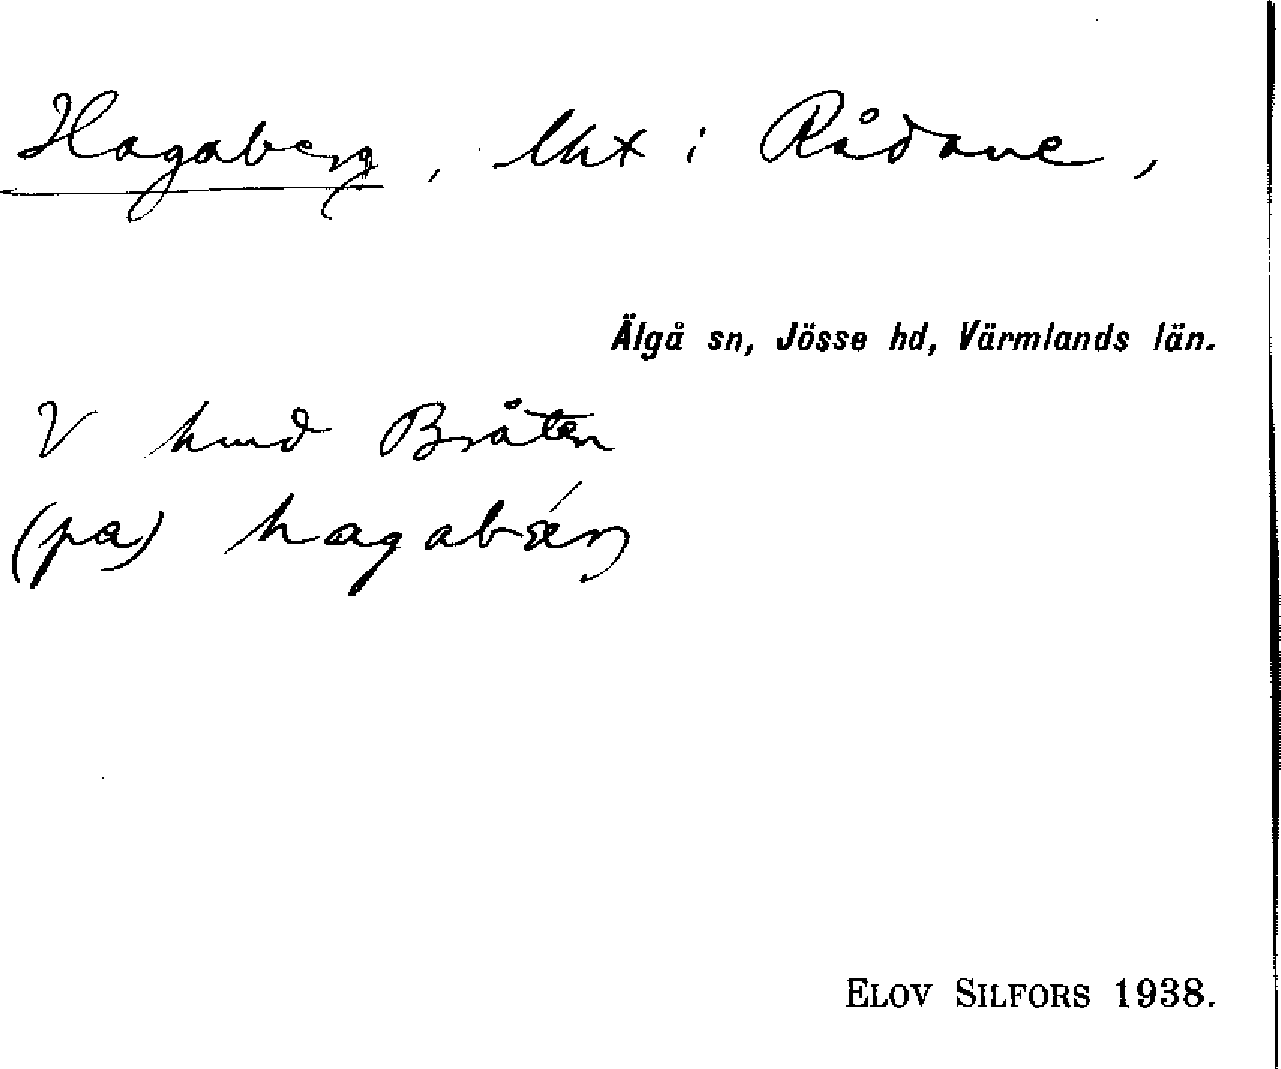 Hagaberg, lht i Rådane,
Älgå sn, Jösse hd, Värmlands län.
V hmd Bråten
(pa) hagabǽrj
ELOV SILFORS 1938.